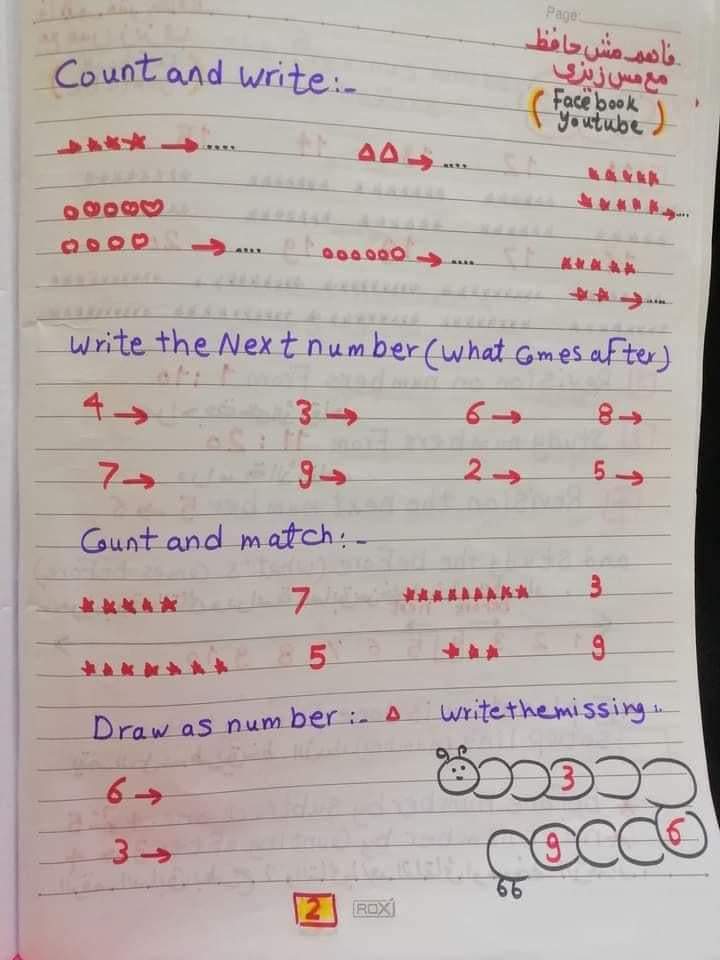 Page:
فاهم مش حافظ
مع مس زيزي
(Facebook
Youtube)
Count and write:-
→ ....
→ ....
→ ...
→ ....
→ ....
→ ....
Write the Next number (what comes after)
4 → 3 → 6 → 8 →
7 → 9 → 2 → 5 →
Count and match:-
7 3
5 9
Draw as number:- Write the missing:.
6 →
3 →
3
9 6
2
ROX